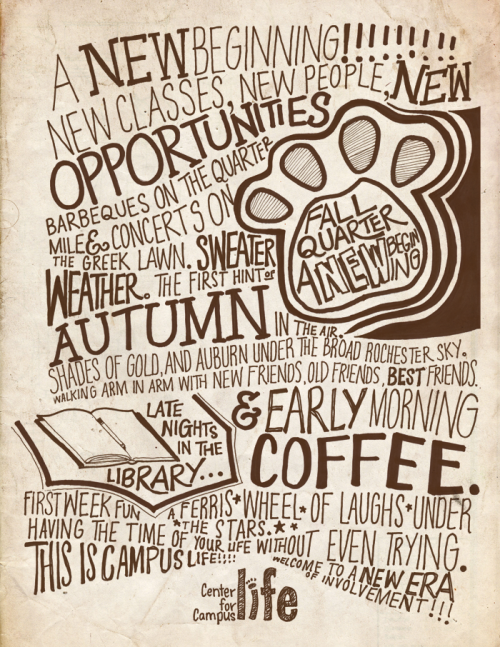 A NEW BEGINNING!!!!!!!!!
NEW CLASSES, NEW PEOPLE, NEW
OPPORTUNITIES
BARBEQUES ON THE QUARTER
MILE & CONCERTS ON
THE GREEK LAWN. SWEATER
WEATHER. THE FIRST HINT OF
AUTUMN IN THE AIR.
FALL
QUARTER
A NEW BEGINNING
SHADES OF GOLD, AND AUBURN UNDER THE BROAD ROCHESTER SKY.
WALKING ARM IN ARM WITH NEW FRIENDS, OLD FRIENDS, BEST FRIENDS.
LATE
NIGHTS
IN THE
LIBRARY...
& EARLY MORNING
COFFEE.
FIRST WEEK FUN A FERRIS*WHEEL*OF LAUGHS*UNDER
*THE STARS.**
HAVING THE TIME OF YOUR LIFE WITHOUT EVEN TRYING.
THIS IS CAMPUS LIFE!!!!
WELCOME TO A NEW ERA
OF INVOLVEMENT!!!
Center
for
Campus life